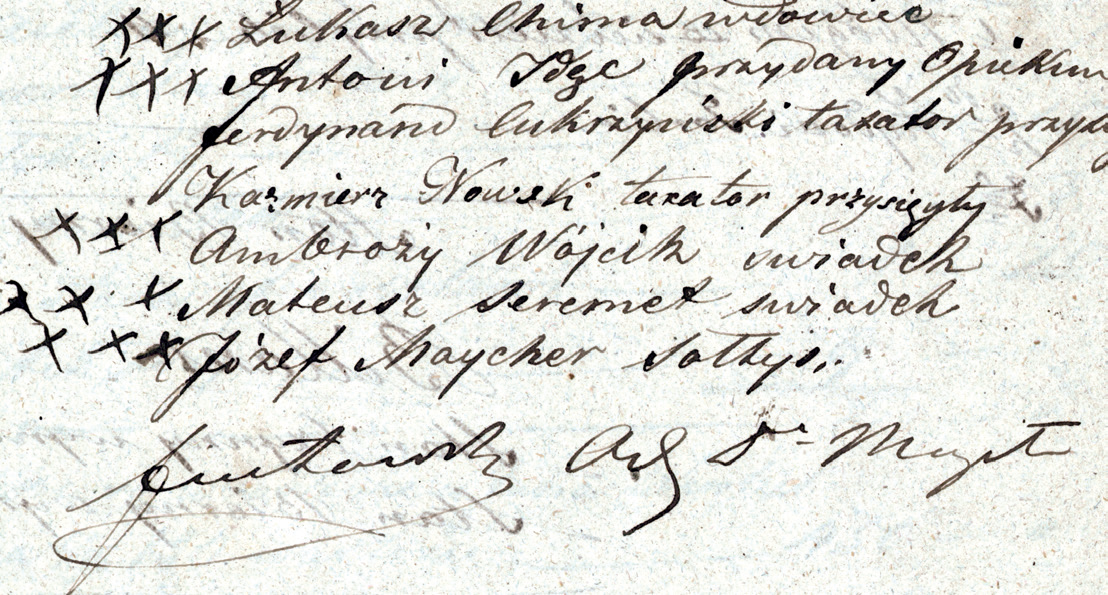 xxx Łukasz Chima wdowiec
xxx Antoni Idge przydany Opiekun
ferdynand Cukrzyński taxator przys
Kazmierz Nowski taxator przysięgły
xxx Ambroży Wójcik swiadek
xxx Mateusz Seremet swiadek
xxx Józef Maycher Sołtys.